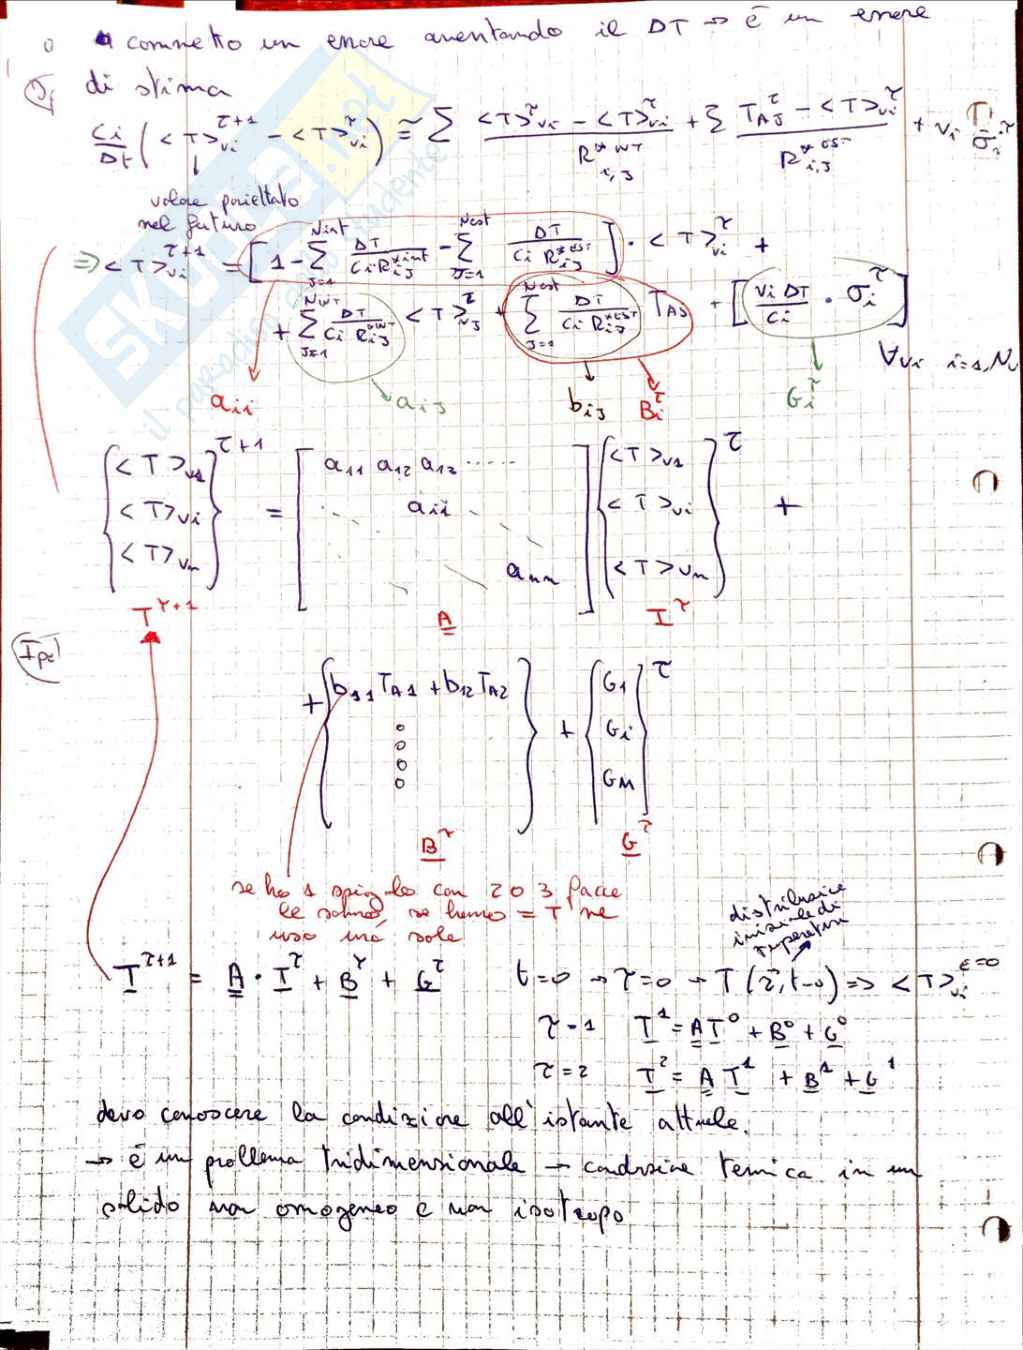 commetto un errore aumentando il DT → è un errore
di stima
Ci/Dt ( <T>vi^τ+1 - <T>vi^τ ) ≅ Σ (<T>vi^τ - <T>vi^τ)/R*INT i,j + Σ (TAJ^τ - <T>vi^τ)/R*EST i,j + vi σi^τ
valore proiettato
nel futuro
⇒ <T>vi^τ+1 = [ 1 - Σ J=1 Nint DT/(Ci Rij*int) - Σ J=1 Nest DT/(Ci Rij*EST) ] · <T>vi^τ +
+ Σ J=1 NINT DT/(Ci Rij*INT) <T>vj^τ + Σ J=1 Nest DT/(Ci Rij*EST) TAJ + [ vi DT/Ci · σi^τ ]
∀ vi i=1,Nv
aii aij bij Bi^τ Gi^τ
{ <T>v1 <T>vi <T>vn }^τ+1 = [ a11 a12 a13 ····· aii ann ] { <T>v1 <T>vi <T>vn }^τ +
T^τ+1 A T^τ
Ip
+ { b11 TA1 + b12 TA2 } + { G1 Gi GM }^τ
B^τ G^τ
se ho 1 spigolo con 2 o 3 facce
le sommo, se hanno = T ne
uso una sola
distribuzione
iniziale di
temperatura
T^τ+1 = A · T^τ + B^τ + G^τ t=0 → τ=0 → T(r, t=0) ⇒ <T>vi^τ=0
τ=1 T^1 = A T^0 + B^0 + G^0
τ=2 T^2 = A T^1 + B^1 + G^1
devo conoscere la condizione all'istante attuale.
→ è un problema tridimensionale → conduzione termica in un
solido non omogeneo e non isotropo
SKUOLA.net
il paradiso dello studente